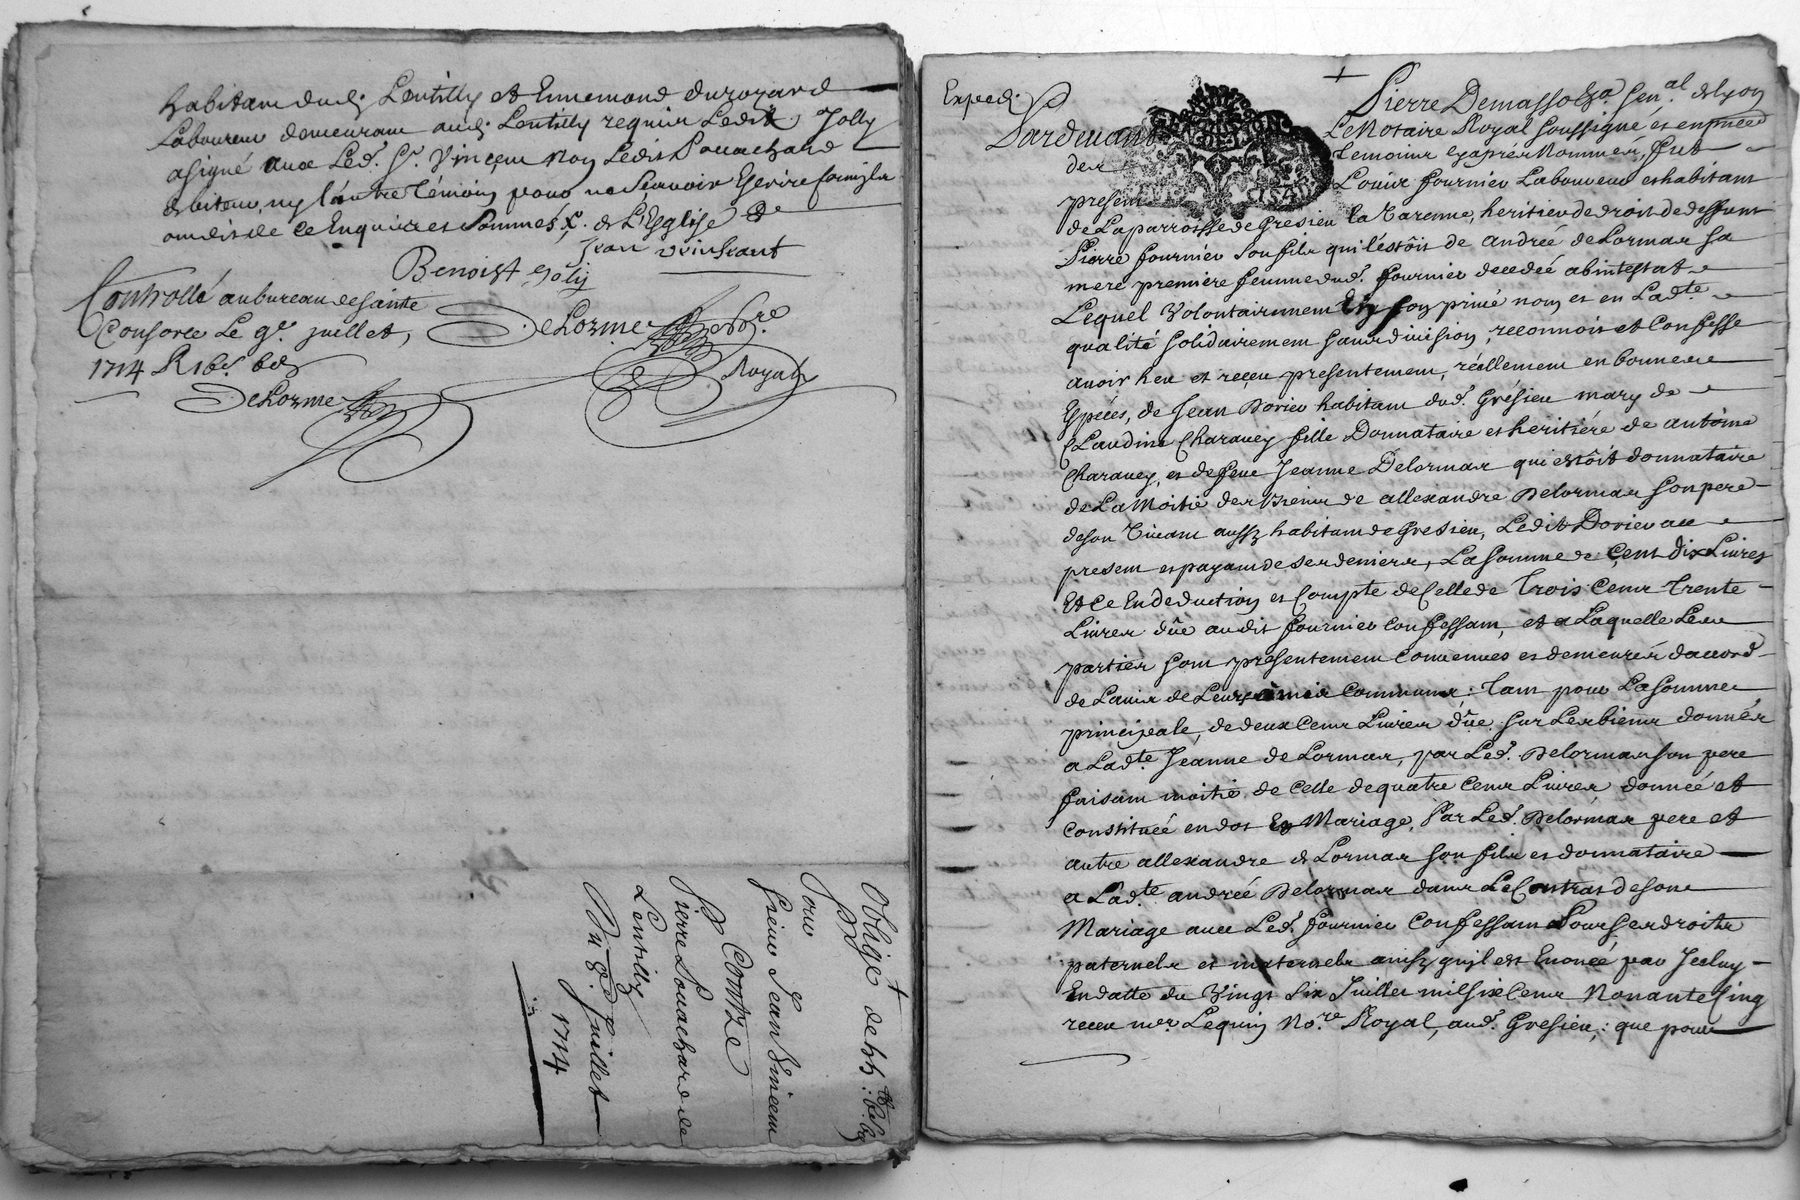 habitant dud. Lentilly et Ennemond duroyard
Laboureur demeurant aud. Lentilly requis Ledit Jolly
a signé avec Led. Sr. Vincent non Ledit Souachard
debiteur, ny l'autre témoin pour ne Scavoir Escrire
ce Enquis et Sommés, de L'Eglise
Jean vinssant
Benoist Joly
Controllé au bureau de Sainte
Consorce Le 9e. juillet,
1714
DeLorme
DeLorme Nore.
Royal
Obligé de
Pour
Sieur Jean Vincent
Contre
Pierre Souachard de
Lentilly
Du 8e Juillet
1714
Expedi.
Pardevant
Pierre Demasso
Sen.al de Lyon
Le Notaire Royal Soussigné et en presence
des
temoins cy apres Nommez, fut
present
Louis fournier Laboureur et habitant
de La parroisse de Gresieu la Varenne, heritier de droit de deffunt
Pierre fournier Son fils qui l'estôit de andrée de Lormas Sa
mere premiere femme dud. fournier decedée abintestat
Lequel Volontairement En Son privé nom et en Lad.te
qualité Solidairement Sans division, reconnoit et Confesse
avoir heu et receu presentement, réellement en bonnes
Espéces, de Jean Dorier habitant dud. Grésieu mary de
Claudine Charavey fille Donnataire et heritiére de antoine
Charavey, et de feue Jeanne Delormas qui estôit donnataire
de La Moitié des Biens de allexandre Delormas Son pere
de son Vivant aussy habitant de Gresieu, Ledit Dorier
present et payant de Ses deniers, La Somme de Cent Dix Livres
Et Ce En deduction et Compte de Celle de Trois Cent Trente
Livres dûe audit fournier Confessant, et a Laquelle Les
parties Sont presentement Convenues et demeurés daccord
de L'avis de Leurs amis Communs: tant pour La Somme
principale, de deux Cent Livres dûe Sur Les biens donnés
a Lad.te Jeanne de Lormas, par Led. Delormas Son pere
faisant moitié de Celle de quatre Cent Livres donnée et
Constituée en dot En Mariage, Par Led. Delormas pere et
autre allexandre de Lormas Son fils et donnataire
a Lad.te andrée Delormas dans Le Contrat de Son
Mariage avec Led. fournier Confessant Pour Ses droits
paternels et maternels ainsy qu'il est Enoncé par Jceluy
En datte du Vingt Six Juillet mil Six Cent Nonante Cinq
receu Me. Lequin No.re Royal, aud. Gresieu; que pour